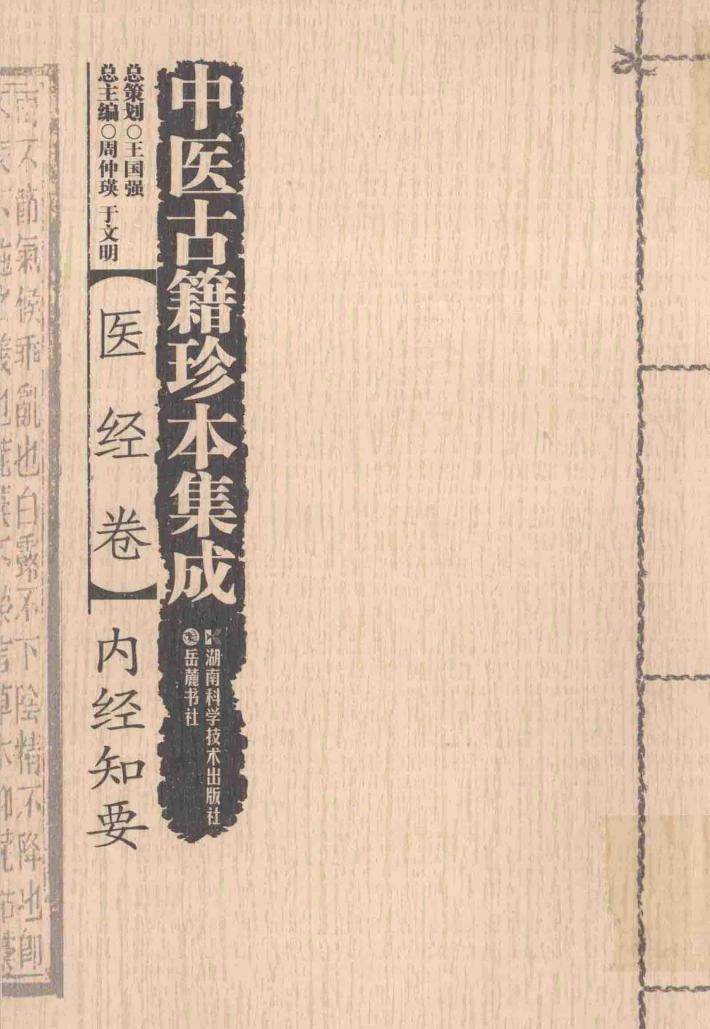 中医古籍珍本集成
湖南科学技术出版社
岳麓书社
总策划○王国强
总主编○周仲瑛 于文明
【医经卷】
内经知要
節氣候乖亂也白露不下陰精不降也